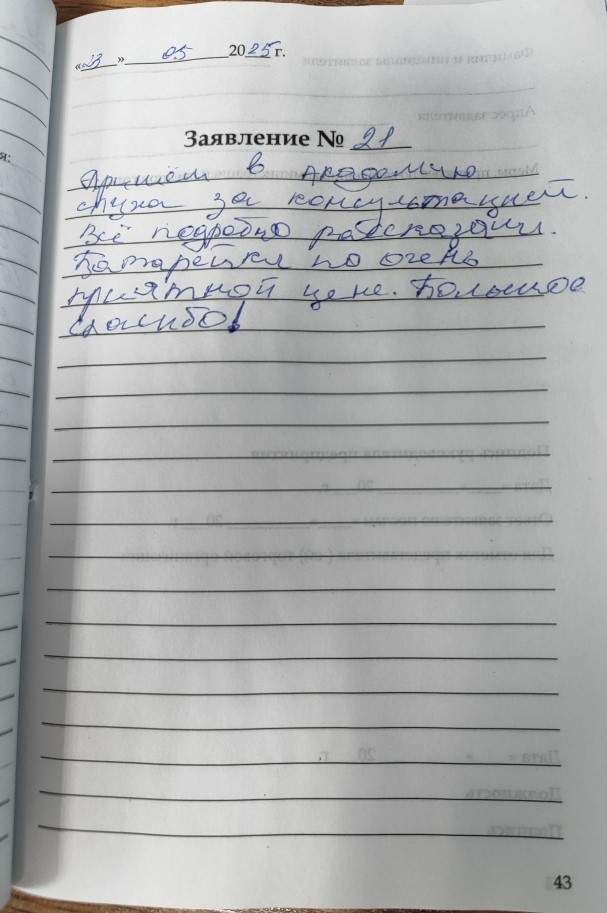 «23» 05 2025 г.
Заявление № 21
Пришём в Академию
слуха за консультацией.
Всё подробно рассказали.
Батарейки по очень
приятной цене. Большое
спасибо!
43